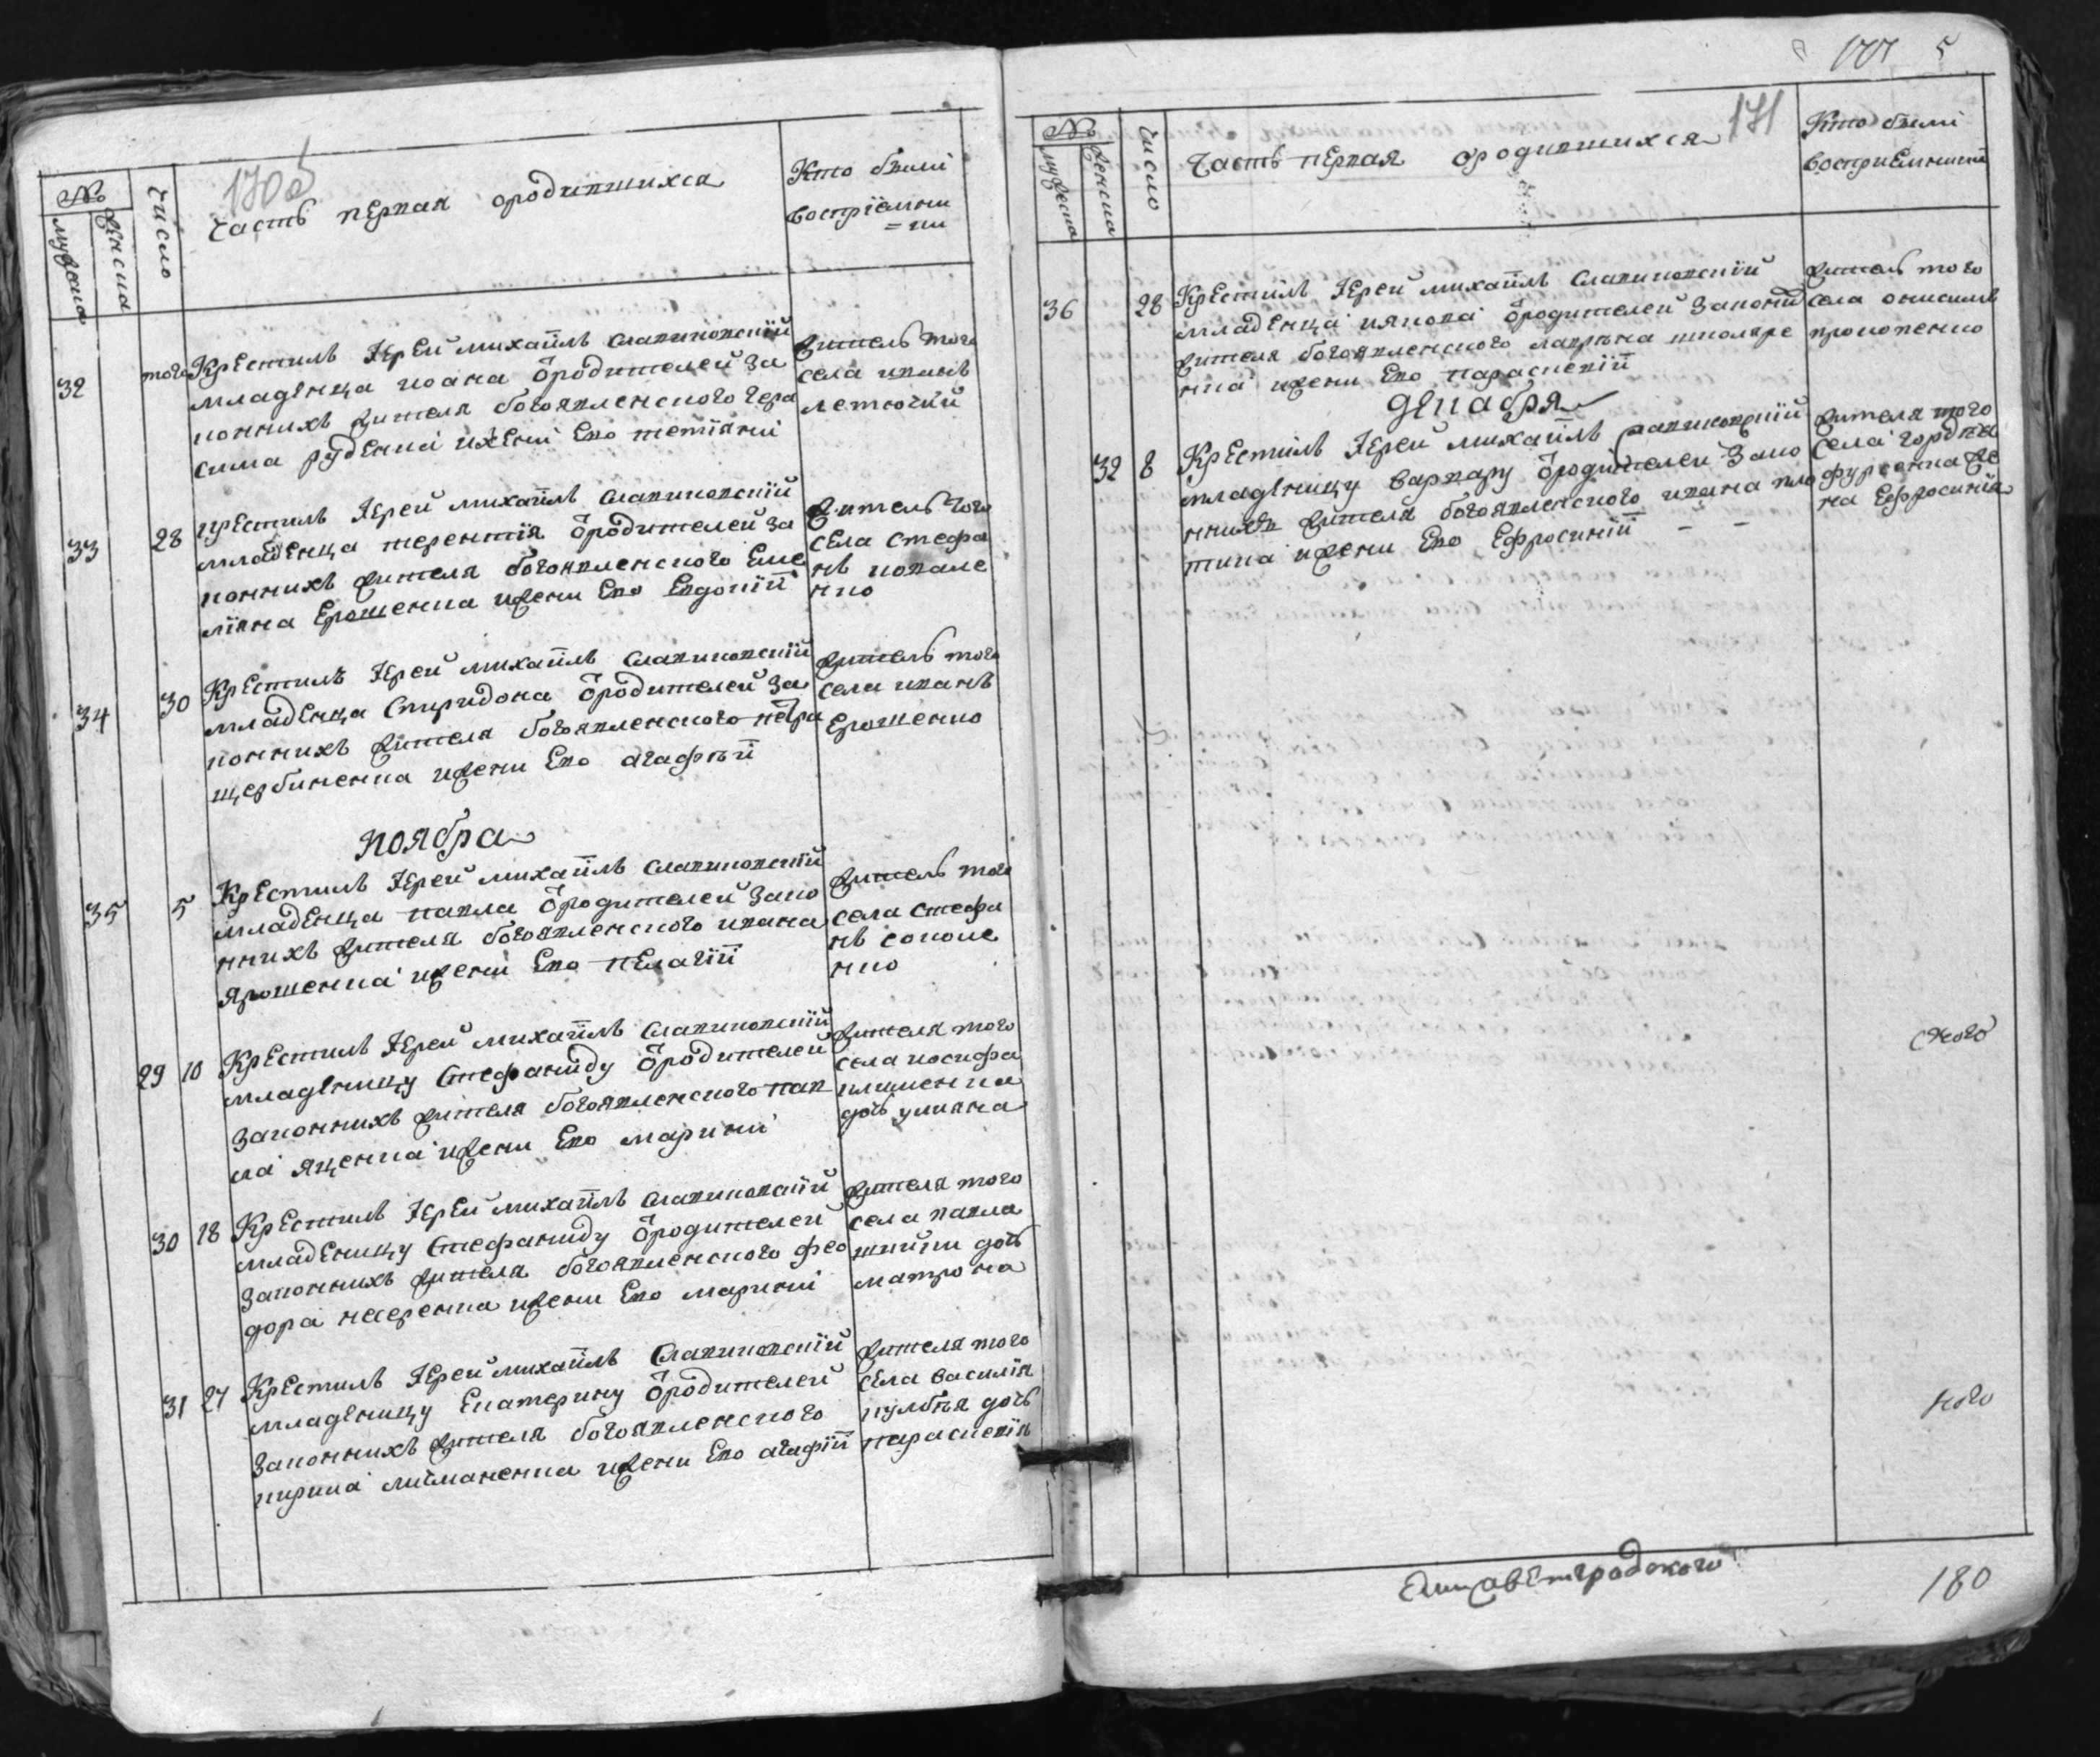 170об
№
мужеска
женска
число
часть первая ородившихся
Кто были
восприемни
=ки
32
того
Крестилъ Іерей михаилъ Славиновскій
младенца иоана ѿродителей за
конныхъ жителя богоявленского гера
сима руденка ижени Его тетіяни
житель того
села иванъ
летючий
33
28
крестилъ Іерей михаилъ Славиновскій
младенца терентія ѿродителей за
конныхъ жителя богоявленского Еме
ліяна Ерошенка ижени Его Евдокіи
житель того
села стефа
нъ ковале
нко
34
30
Крестилъ Іерей михаилъ Славиновскій
младенца Спиридона ѿродителей за
конныхъ жителя богоявленского петра
щербиненка ижени Его агафьи
житель того
села иванъ
Ерошенко
Ноября
35
5
Крестилъ Іерей михаилъ Славиновскій
младенца павла ѿродителей зако
нныхъ жителя богоявленского ивана
Ярошенка ижени Его пелагіи
житель того
села стефа
нъ соколе
нко
29
10
Крестилъ Іерей михаилъ Славиновскій
младеницу Стефаниду ѿродителей
законныхъ жителя богоявленского пав
ла яценка ижени Его марини
жителя того
села иосифа
клименка
дочь улияна
30
18
Крестилъ Іерей михаилъ Славиновскій
младеницу Стефаниду ѿродителей
законныхъ жителя богоявленского фео
дора ижени Его марини
жителя того
села павла
дочь
матрона
31
27
Крестилъ Іерей михаилъ Славиновскій
младеницу Екатерину ѿродителей
законныхъ жителя богоявленского
кирила лисманенка ижени Его агафіи
жителя того
села василія
дочь
параскевія
5
171
№
мужеска
женска
число
Часть первая ородившихся
Кто были
восприемники
36
28
Крестилъ Іерей михаилъ Славиновскій
младенца иякова ѿродителей законнй
жителя богоявленского лаврѣна школяре
нка ижени Его параскевіи
житель того
села онисимъ
прокопенко
декабря
32
8
Крестилъ Іерей михаилъ Славиновскій
младеницу варвару ѿродителей зако
нныхъ жителя богоявленского ивана пло
тика ижени Его Ефросиніи – –
жителя того
села гордѣя
фурсенка же
на Ефросинія
Елисаветградского
180